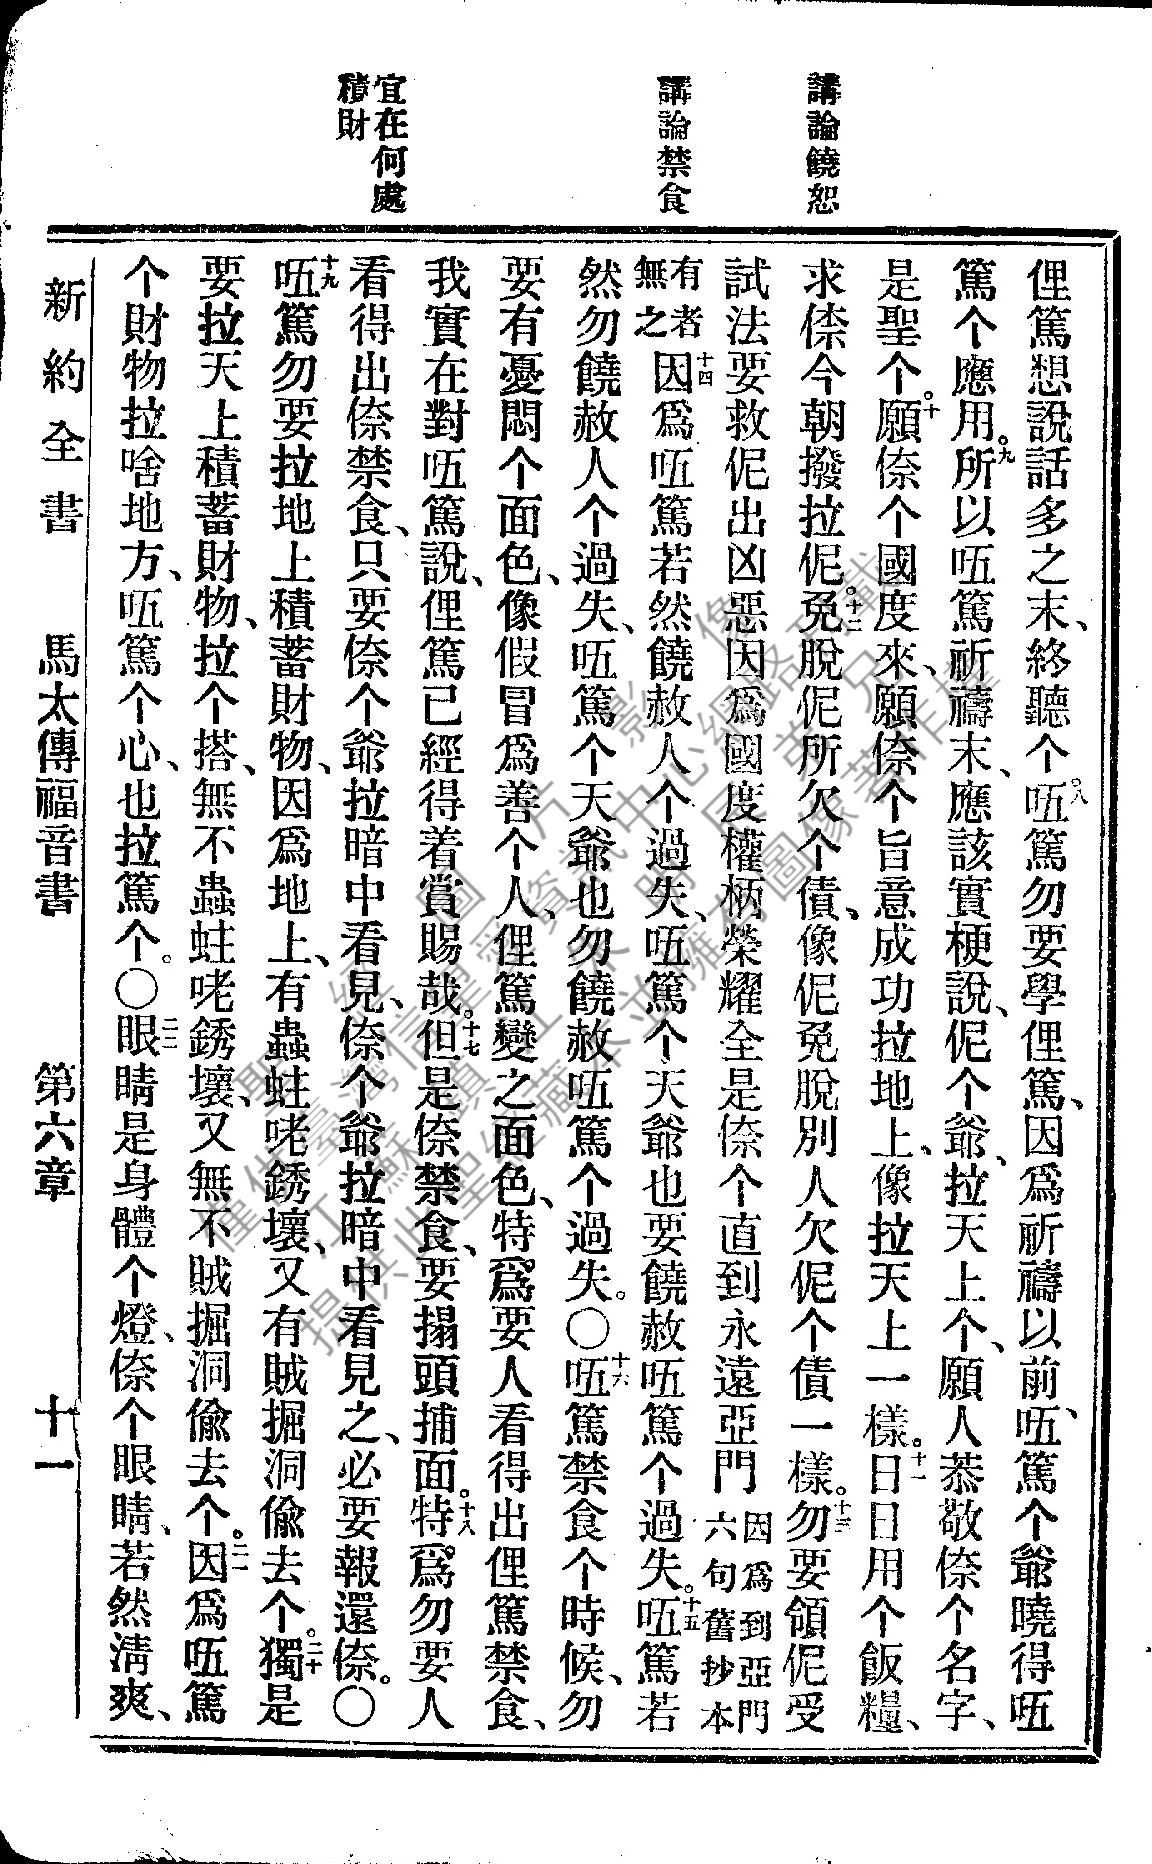 講論饒恕
講論禁食
宜在何處
積財
俚篤想說話多之末、終聽个。八㕶篤勿要學俚篤、因爲祈禱以前、㕶篤个爺曉得㕶
篤个應用。九所以㕶篤祈禱末、應該實梗說、伲个爺、拉天上个、願人恭敬倷个名字、
是聖个。十願倷个國度來、願倷个旨意成功拉地上、像拉天上一樣。十一日日用个飯糧、
求倷今朝撥拉伲。十二免脫伲所欠个債、像伲免脫別人欠伲个債一樣。十三勿要領伲受
試法要救伲出凶惡因爲國度權柄榮耀全是倷个直到永遠亞門因爲到亞門六句舊抄本
有者無之十四因爲㕶篤若然饒赦人个過失、㕶篤个天爺也要饒赦㕶篤个過失。十五㕶篤若
然勿饒赦人个過失、㕶篤个天爺也勿饒赦㕶篤个過失。〇十六㕶篤禁食个時候、勿
要有憂悶个面色、像假冒爲善个人、俚篤變之面色、特爲要人看得出俚篤禁食、
我實在對㕶篤說、俚篤已經得着賞賜哉。十七但是倷禁食、要搨頭捕面。十八特爲勿要人
看得出倷禁食、只要倷个爺拉暗中看見、倷个爺拉暗中看見之、必要報還倷。〇
十九㕶篤勿要拉地上積蓄財物、因爲地上、有蟲蛀咾銹壞、又有賊掘洞偸去个。二十獨是
要拉天上積蓄財物、拉个搭、無不蟲蛀咾銹壞、又無不賊掘洞偸去个。二一因爲㕶篤
个財物拉啥地方、㕶篤个心、也拉篤个。〇二二眼睛是身體个燈、倷个眼睛、若然淸爽、
新約全書 馬太傳福音書 第六章 十一